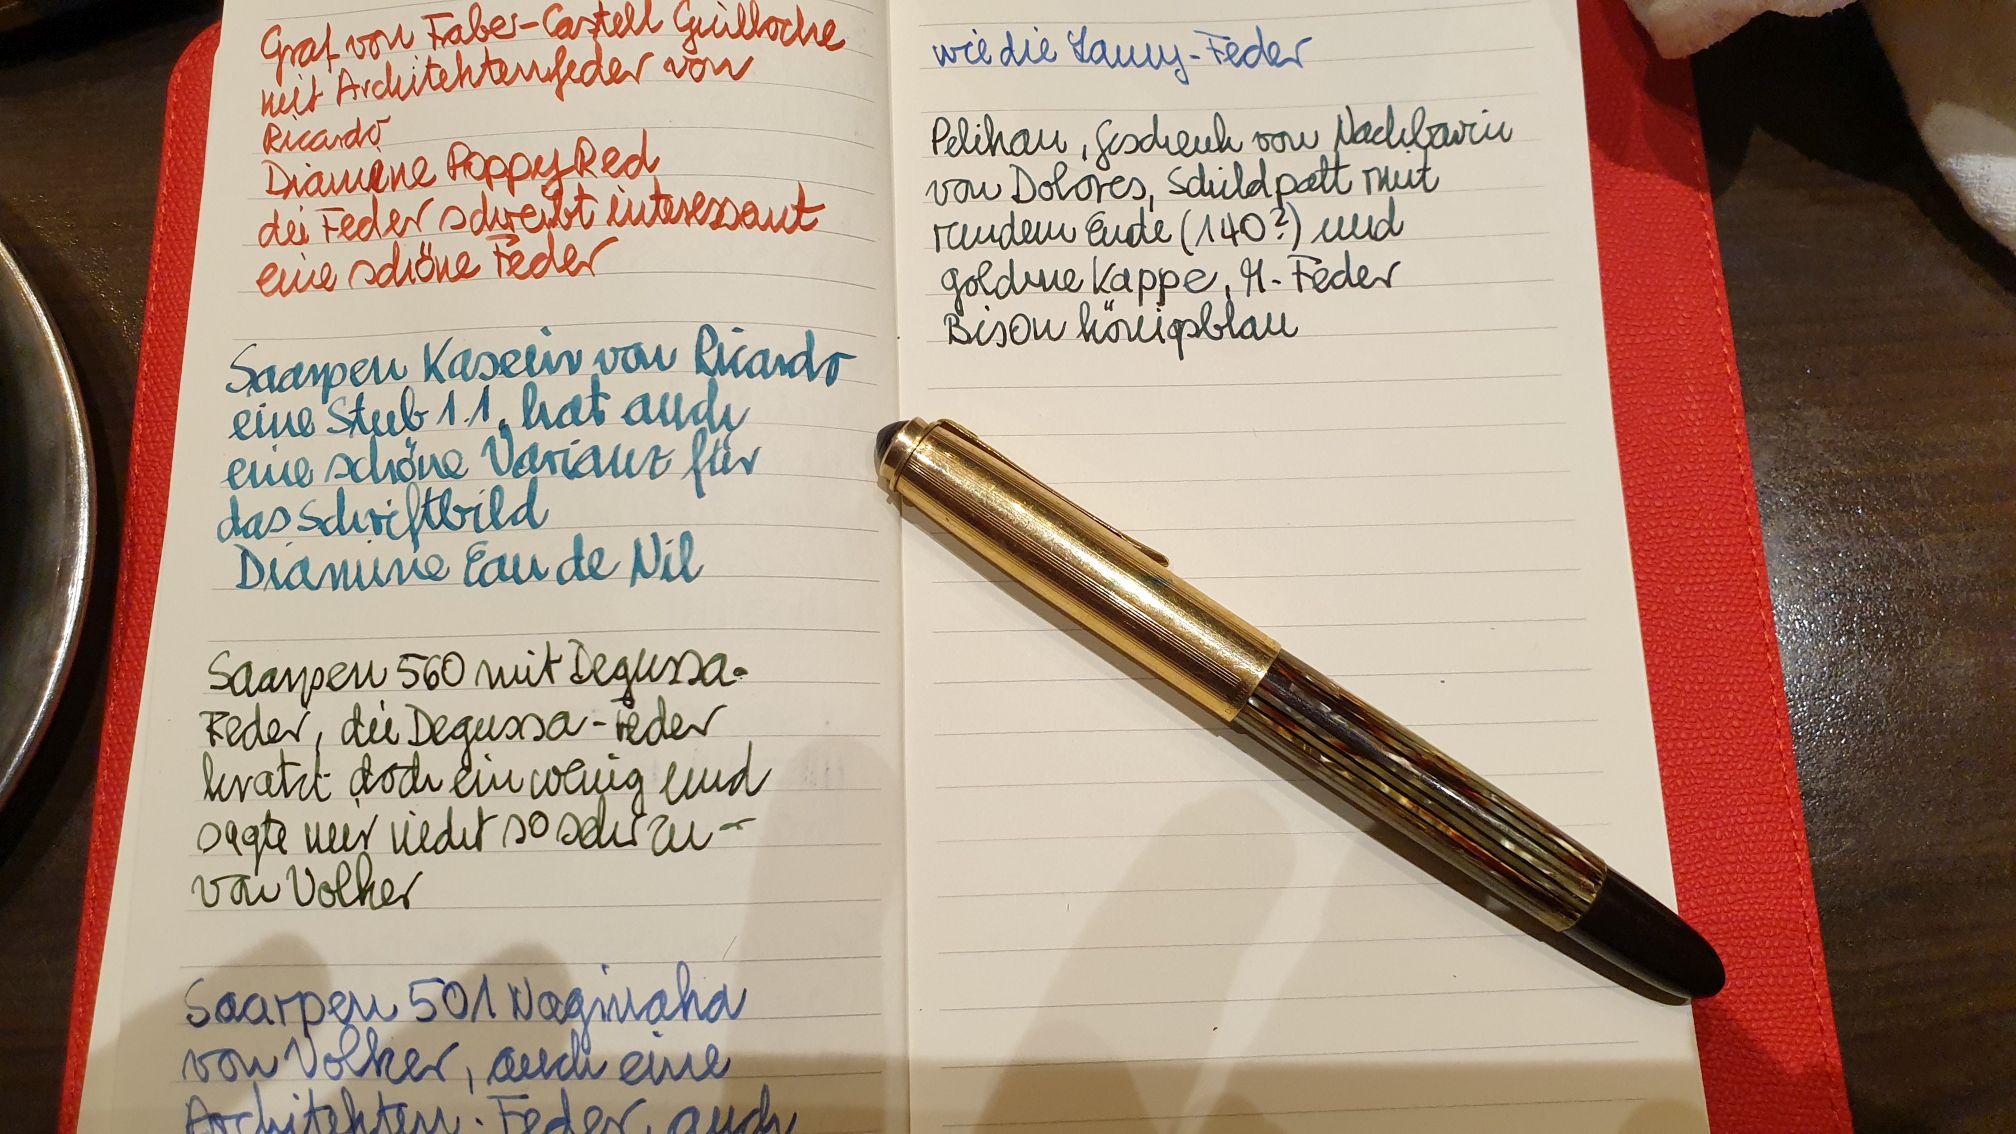 Graf von Faber-Castell Guilloche
mit Architektenfeder von
Ricardo
Diamine Poppy Red
die Feder schreibt interessant
eine schöne Feder
Saarpen Kasein von Ricardo
eine Stub 1.1, hat auch
eine schöne Varianz für
das Schriftbild
Diamine Eau de Nil
Saarpen 560 mit Degussa-
Feder, die Degussa-Feder
kratzt doch ein wenig und
sagte mir nicht so sehr zu -
von Volker
Saarpen 501 Naginata
von Volker, auch eine
Architekten-Feder, auch
wie die Lamy-Feder
Pelikan, Geschenk von Nachbarin
von Dolores, Schildpatt mit
rundem Ende (140?) und
goldene Kappe, M-Feder
Bison königsblau